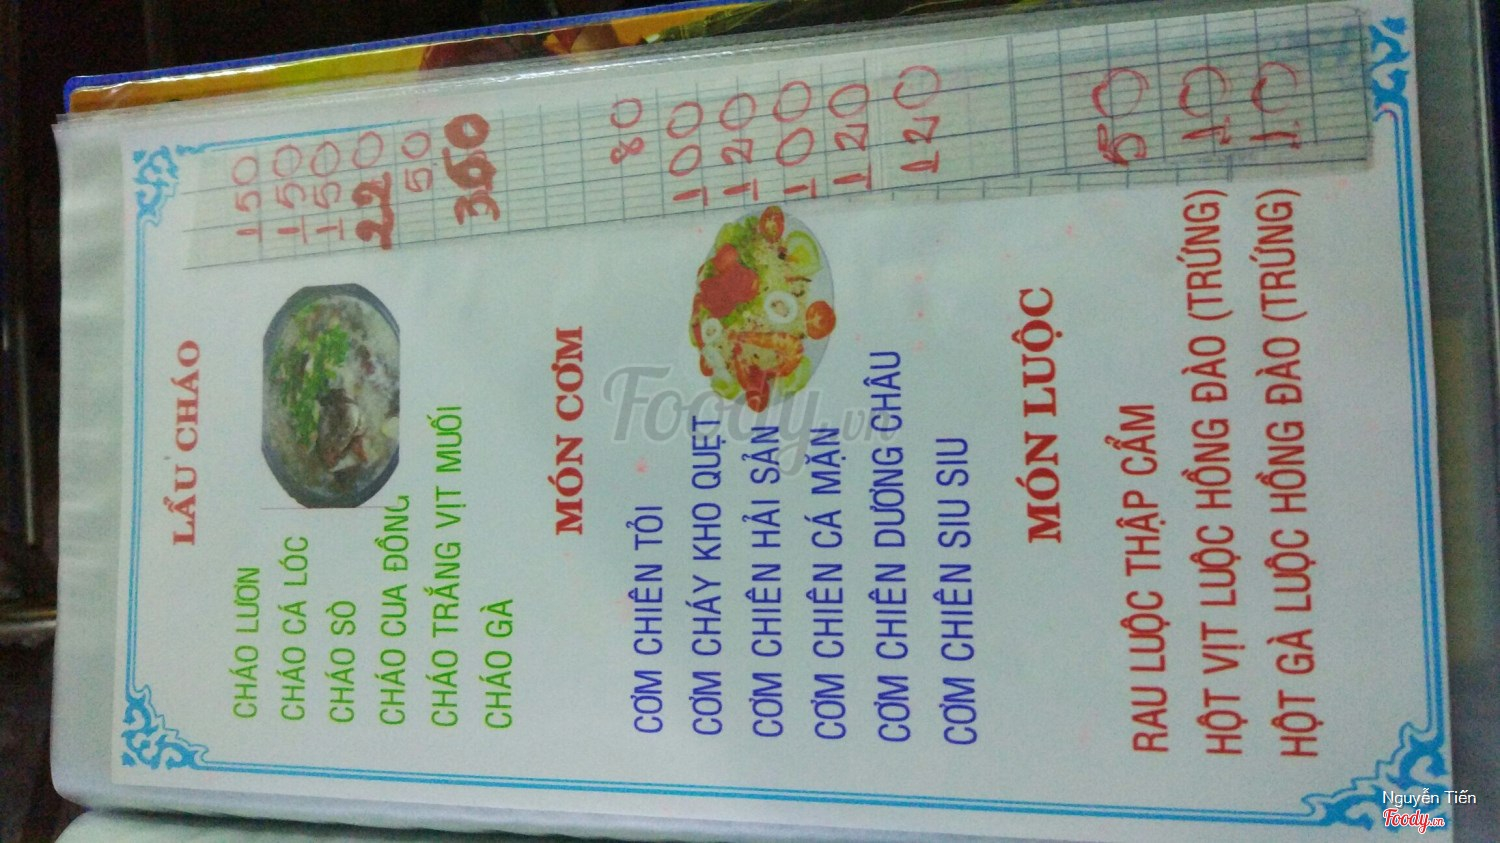 LẨU CHÁO
CHÁO LƯƠN 150
CHÁO CÁ LÓC 150
CHÁO SÒ 150
CHÁO CUA ĐỒNG 220
CHÁO TRẮNG VỊT MUỐI 50
CHÁO GÀ 350
MÓN CƠM
CƠM CHIÊN TỎI 80
CƠM CHÁY KHO QUẸT 100
CƠM CHIÊN HẢI SẢN 120
CƠM CHIÊN CÁ MẶN 100
CƠM CHIÊN DƯƠNG CHÂU 120
CƠM CHIÊN SIU SIU 120
MÓN LUỘC
RAU LUỘC THẬP CẨM 50
HỘT VỊT LUỘC HỒNG ĐÀO (TRỨNG) 10
HỘT GÀ LUỘC HỒNG ĐÀO (TRỨNG) 10
Foody.vn
Nguyễn Tiến
Foody.vn